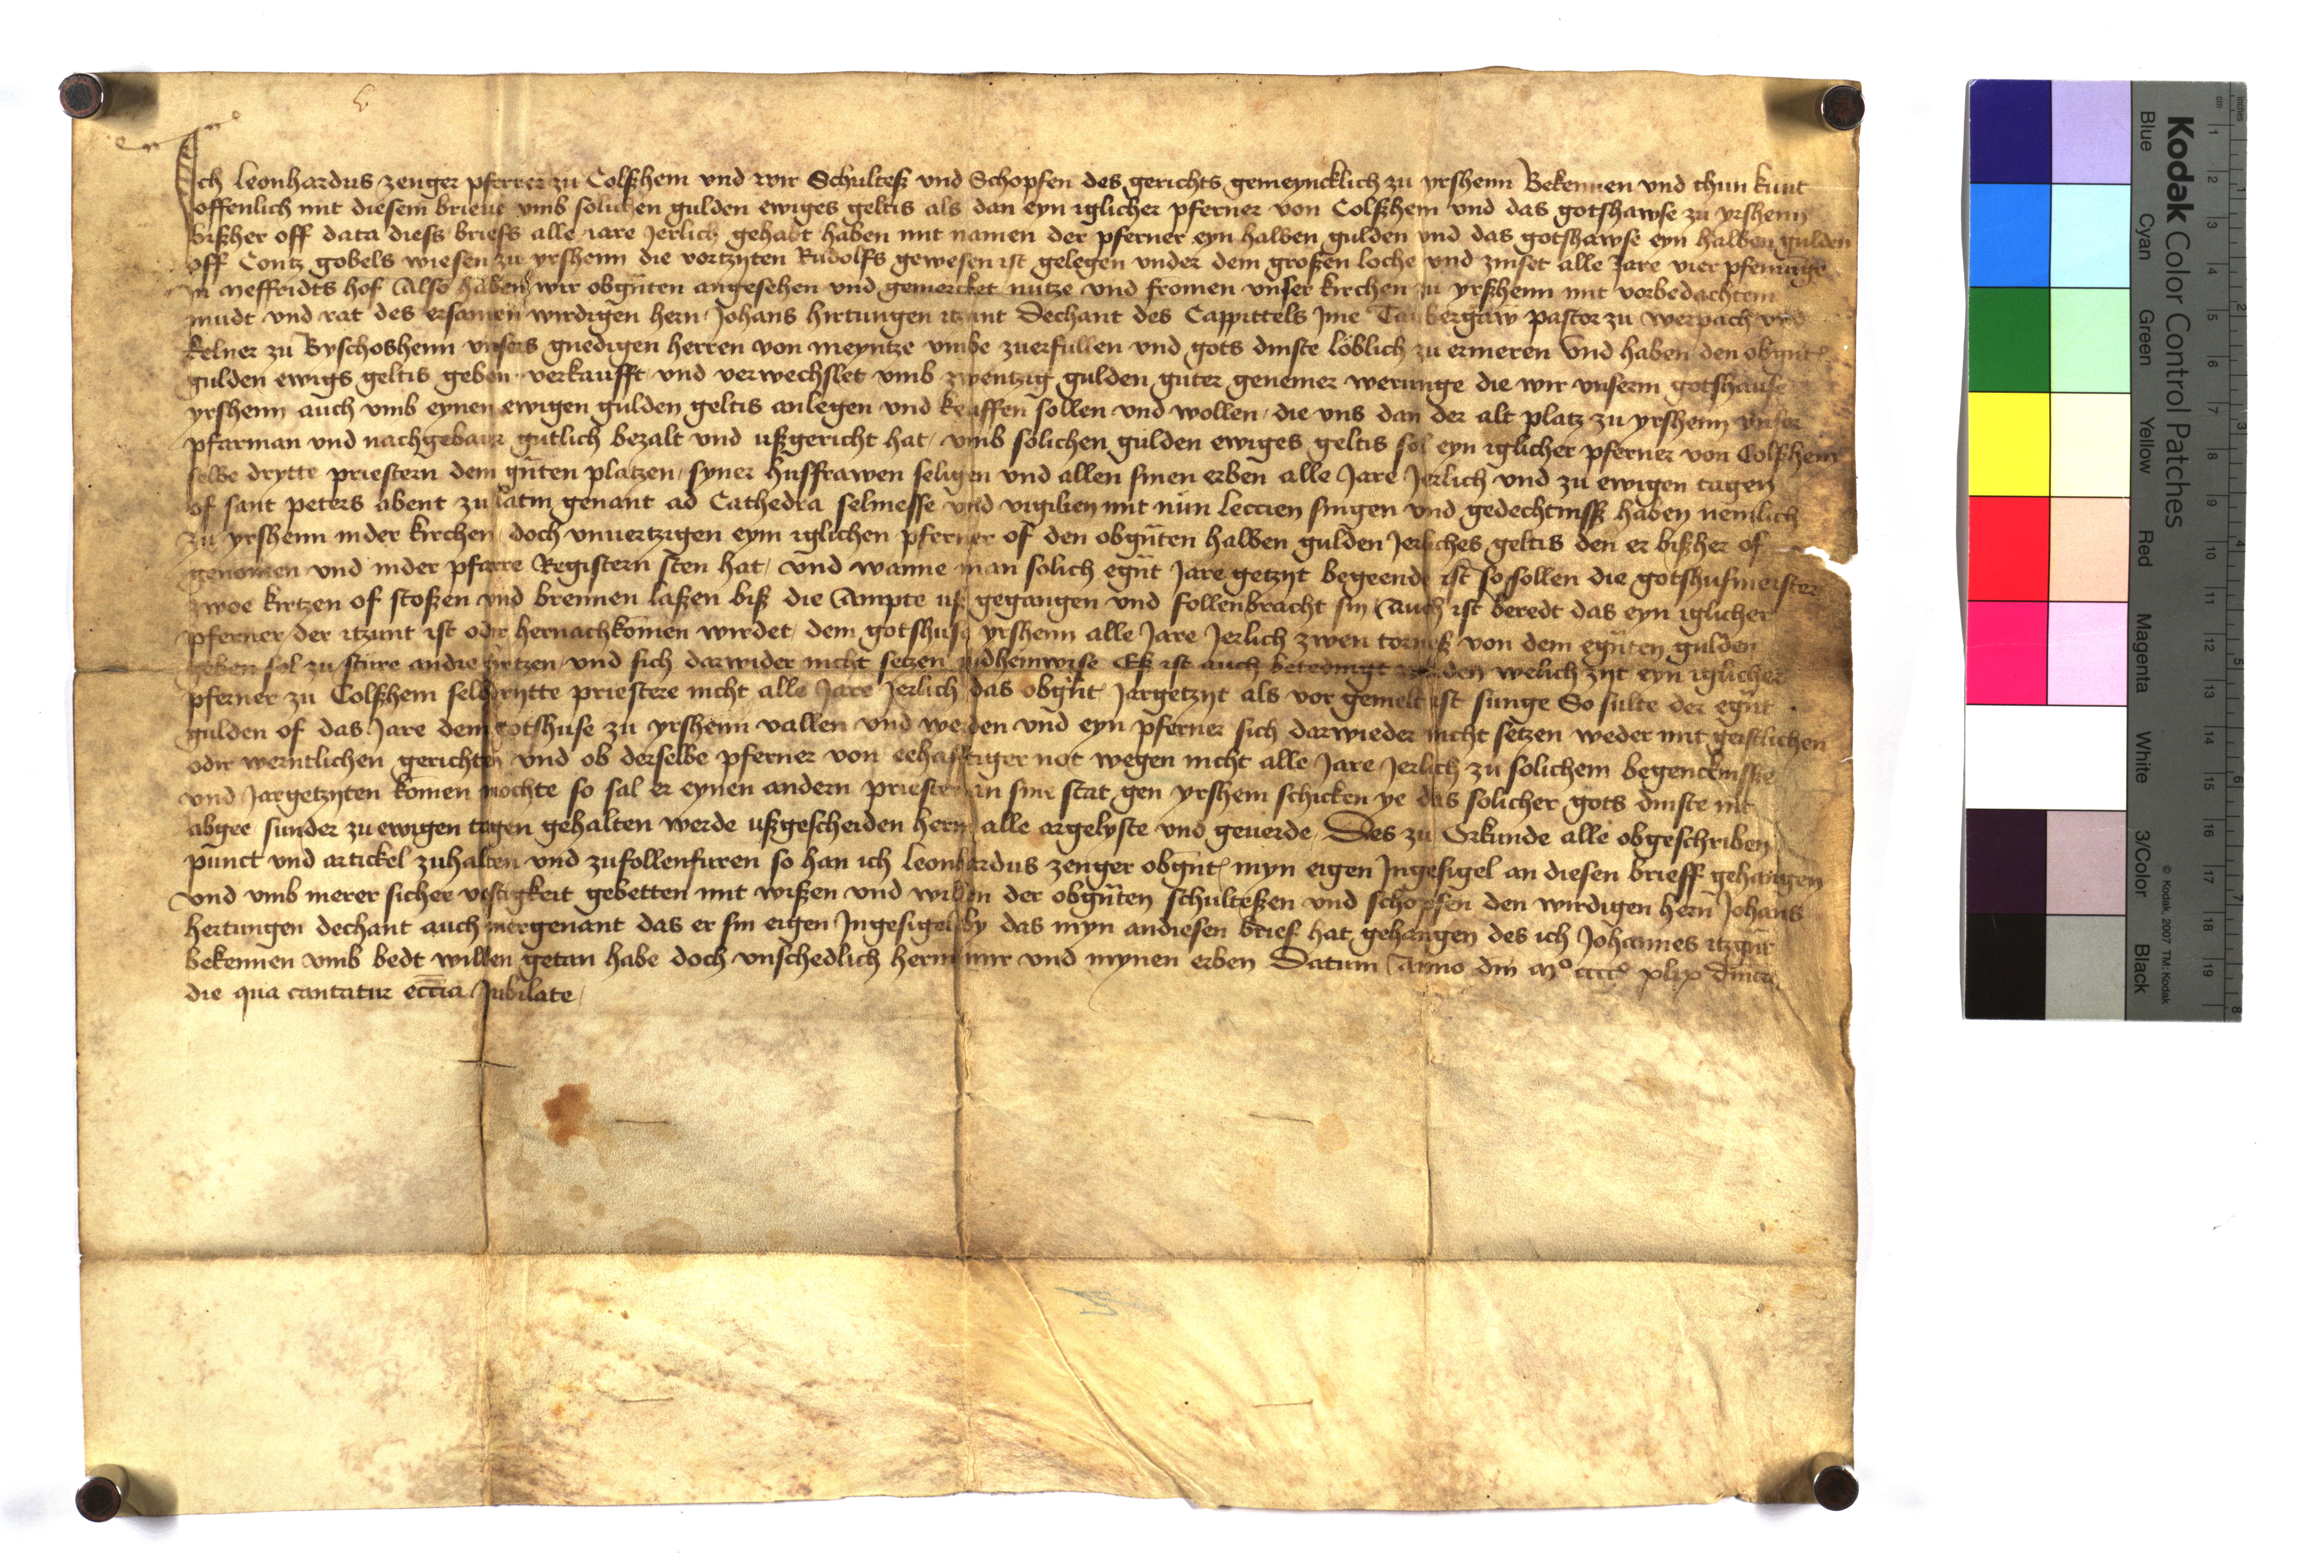 Ich Leonhardus zenger pferrer zu Colßhem vnd wir Schulteß vnd Schopfen des gerichts gemeyncklich zu yrshenn Bekennen vnd thun kunt
offenlich mit diesem brieue vmb solichen gulden ewiges geltis als dan eyn iglicher pferner von Colßhem vnd das gotshawse zu yrshenn
bißher off data diess briefs alle iare Jerlich gehabt haben mit namen der pferner eyn halben gulden vnd das gotshawse eyn halben gulden
off Contz gobels wiesen zu yrshenn die vortzyten Rudolfs gewesen ist gelegen vnder dem großen loche vnd zinset alle Jare vier pfennige
in Meffridts hof Also haben wir obgnten angesehen vnd gemercket nutze vnd fromen vnser kirchen zu yrßhenn mit vorbedachtem
mudt vnd rat des ersamen wirdigen hern Johans hirtungen itzunt Dechant des Cappittels Jme Taubergaw pastor zu werpach vnd
kelner zu Byschoshenn vnsers gnedigen herren von meyntze vmbe zuerfullen vnd gots dinste löblich zu ermeren Vnd haben den obgnt
gulden ewigs geltis geben verkaufft vnd verwechslet vmb zwentzig gulden guter genemer werunge die wir vnserm gotshause
yrshenn auch vmb eynen ewigen gulden geltis anlegen vnd keuffen sollen vnd wollen die vns dan der alt platz zu yrshenn vnser
pfarman vnd nachgebaur gutlich bezalt vnd ußgericht hat vmb solichen gulden ewiges geltis sol eyn iglicher pferner von Colßhem
selbe drytte priestern dem gnten platzen syner husfrawen seligen vnd allen sinen erben alle Jare Jerlich vnd zu ewigen tagen
of sant peters abent zu latin genant ad Cathedra selmesse vnd vigilien mit nün leccien singen vnd gedechtnisß haben nemlich
zu yrshenn inder kirchen doch vnuertzigen eym iglichen pferner of den obgnten halben gulden Jerliches geltis den er bißher of
genomen vnd inder pfarre Registern sten hat vnd wanne man solich egnt Jare getzyt begeende ist so sollen die gotshusmeister
zwoe kirtzen of stoßen vnd brennen laßen biß die Ampte uß gegangen vnd follenbracht sin Auch ist beredt das eyn iglicher
pferner der itzunt ist oder hernachkomen wirdet dem gotshuse yrshenn alle Jare Jerlich zwen torneß von dem egnten gulden
geben sol zu sture andie kirtzen vnd sich darwider nicht setzen indheinwise Eß ist auch beteidingt worden welich zyt eyn iglicher
pferner zu Colßhem selbdrytte priestere nicht alle Jare Jerlich das obgnt Jargetzyt als vor gemelt ist sunge So sulte der egnt
gulden of das Jare dem gotshuse zu yrshenn vallen vnd werden vnd eyn pferner sich darwieder nicht setzen weder mit geistlichen
oder werntlichen gerichten vnd ob derselbe pferner von eehafftiger not wegen nicht alle Jare Jerlich zu solichem begencknisse
vnd Jargetzyten komen mochte so sal er eynen andern priester an sine stat gen yrshem schicken ye das solicher gots dinste nit
abgee sunder zu ewigen tagen gehalten werde ußgescheiden herin alle argelyste vnd geuerde Des zu Orkunde alle obgeschriben
punct vnd artickel zuhalten vnd zufollenfuren so han ich Leonhardus zenger obgnt myn eigen Jngesigel an diesen brieff gehangen
vnd vmb merer sicher vestigkeit gebetten mit wißen vnd willen der obgnten schulteßen vnd schopfen den wirdigen hern Johans
hertungen dechant auch mergenant das er sin eigen Jngesigel by das myn andiesen brief hat gehangen des ich Johannes itzgnt
bekennen vmb bedt willen getan habe doch vnschedlich herin mir vnd mynen erben Datum Anno dm Mo cccco xlix dmca
die qua cantatur eccia Jubilate

Kodak Color Control Patches
Blue Cyan Green Yellow Red Magenta White 3/Color Black
© Kodak, 2007 TM: Kodak
cm 1 2 3 4 5 6 7 8 9 10 11 12 13 14 15 16 17 18 19
inches 1 2 3 4 5 6 7 8